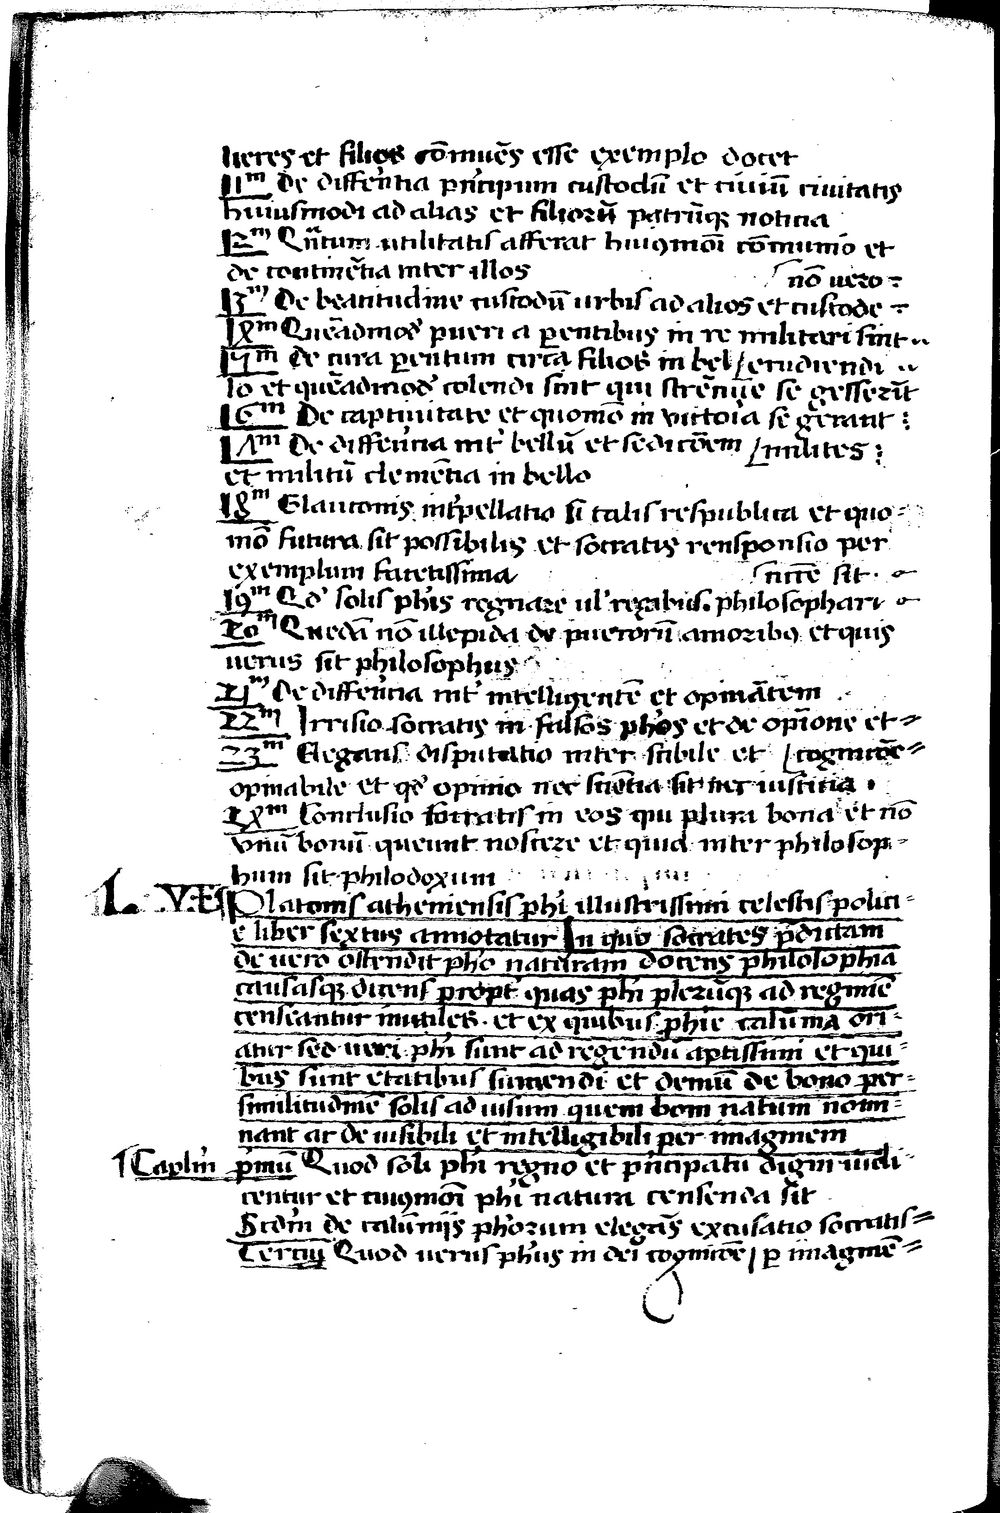 lieres et filios cōmuēs esse exemplo docet
11m De differ̄tia prīcipum custodū et ciuiū ciuitatis
huiusmodi ad alias et filiorū patrūq noticia
12m Qn̄tum utilitatis afferat huiqmōi cōmunio et
de continētia inter illos
nō uero
13m De beatitudine custodū urbis ad alios et custode
1Xm Queādmod pueri a parentibus in re militari sint
15m De cura parentum circa filios in bel erudiendi
lo et queādmod colendi sint qui strēnue se gesserīt
16m De captiuitate et quomō in uictoia se gerant
1Λm De differ̄tia int bellū et sedicōem milites
et militū clemētia in bello
18m Glauconis intpellatio si talis respublica et quo
mō futura sit possibilis et socratis rensponsio per
exemplum facetissima
nitē sit
19m Qd solis phis regnare ul regibus philosophari
20m Quedā nō illepida de puerorū amoribq et quis
uerus sit philosophus
21m De differ̄tia int intelligentē et opinātem
22m Irrisio socratis in falsos phos et de opīone et
23m Elegans disputatio inter scibile et cognicōe
opinabile et qd opinio nec sciētia sit nec inscitia
2Xm Conclusio socratis in eos qui plura bona et nō
vnū bonū queunt noscere et quid inter philosop
hum sit philodoxum
L. VI Platonis atheniensis phi illustrissimi celestis polici
e liber sextus annotatur In quo socrates pdictam
de uero ostendit pho naturam docens philosophia
causasq dicens propt quas phi plerūq ad regimē
censeantur inutiles et ex quibus phie calūma ori
atur sed ueri phi sunt ad regendū aptissimi et qui
bus sunt etatibus sumendi et demū de bono per
similitudinē solis ad uisum quem boni natum nomi
nant ac de uisibili et intelligibili per imaginem
Caplm pmū Quod soli phi regno et prīcipatu digni iudi
centur et cuiqmōi phi natura censenda sit
Scdm de calūmiis phorum elegās excusatio socratis
Terciū Quod uerus phus in dei cognicōe p imaginē